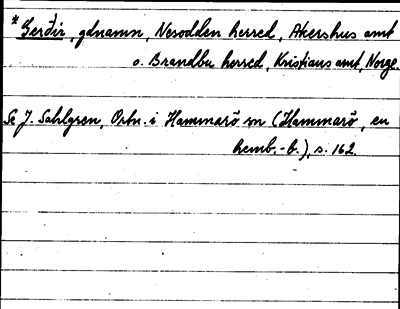 *Gerðir, gdnamn, Nesodden herred, Akershus amt
o. Brandbu herred, Kristians amt, Norge.
Se J. Sahlgren, Ortn. i Hammarö sn (Hammarö, en
hemb.-b.), s. 162.